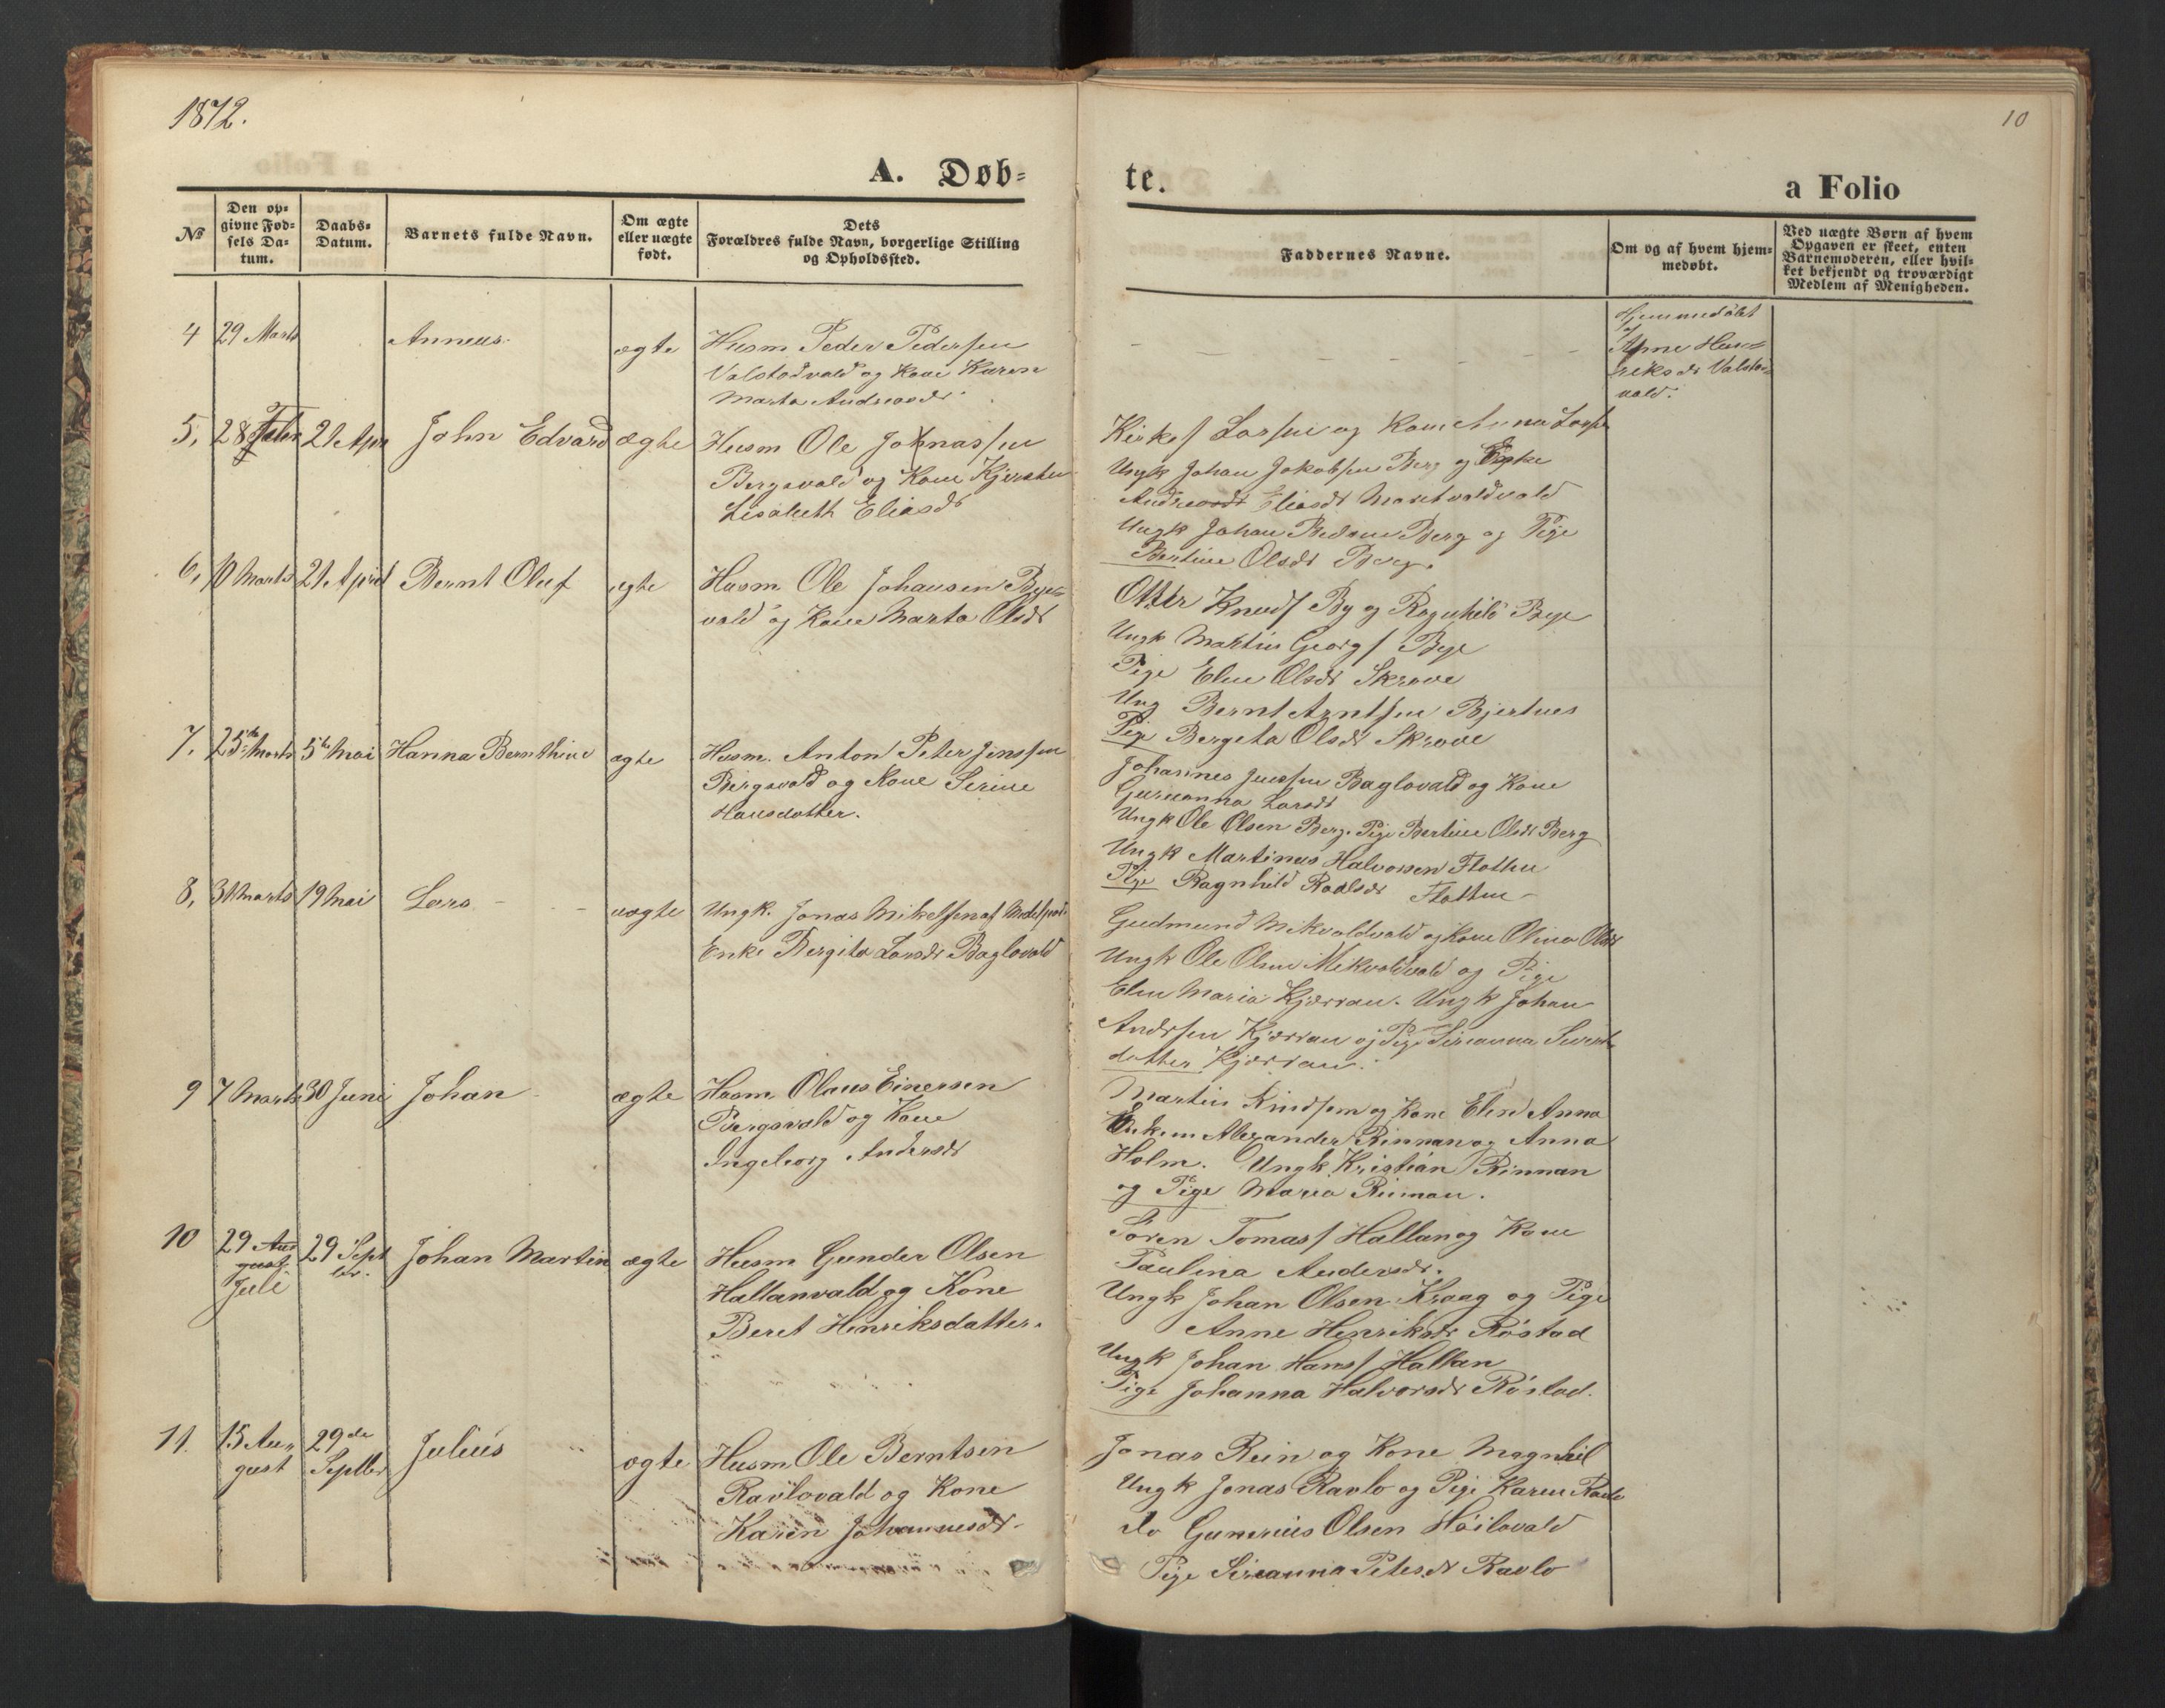 1872.
10
A. Døb=
te.
a Folio
No
Den op=
givne Fød=
sels Da=
tum.
Daabs=
Datum.
Barnets fulde Navn.
Om ægte
eller uægte
født.
Dets
Forældres fulde Navn, borgerlige Stilling
og Opholdssted.
Faddernes Navne.
Om og af hvem hjem=
medøbt.
Ved uægte Børn af hvem
Opgaven er skeet, enten
Barnemoderen, eller hvil=
ket bekjendt og troværdigt
Medlem af Menigheden.
4 29 Marts Anneus ægte
Husm Peder Pedersen
Valstadvald og Kone Karen
Marta Andreasdr
Hjemmedöbt
af
Anne Hen=
riksdr Valsta=
vald.
5, 28 Febr 21 Apr John Edvard ægte
Husm Ole Johnassen
Bergsvald og Kone Kjersten
Lisabeth Eliasdr
Larsen og Kone Anna
Ungk Johan Jakobsen Berg og Enke
Eliasdr
Ungk Johan Berg og Pige
Bertine Olsdr Berg.
6, 10 Marts 21 April Bernt Oluf ægte
Husm Ole Johansen Bye=
vald og Kone Marta Olsdr
Otter Knuds By og Ragnhild Bye
Ungk Martin Georgs Bye
Pige Elen Olsdr Skrove
Ung Bernt Arntsen Bjertnes
Pige Bergeta Olsdr Skrove
7, 25de Marts 5te Mai Hanna Bernthine ægte
Husm. Anton Peter Jenssen
Bergsvald og Kone Serine
Hansdatter.
Johannes Jenssen Baglovald og Kone
Gurianna Larsdr
Ungk Ole Olsen Berg. Pige Bertine Olsdr Berg
Ungk Martinus Halvorsen Flotten
Pige Ragnhild Roalsdr Flotten
8, 31 Marts 19 Mai Lars uægte
Ungk. Jonas Mikelsen af
Enke Bergita Larsdr Baglovald
Gudmund Mikvoldvald og Kone Olina Olsdr
Ungk Ole Olsen Mikvoldvald og Pige
Elen Maria Kjærran. Ungk Johan
Andrsen Kjærran og Pige Sirianna Sivert
datter Kjærran.
9 7 Marts 30 Juni Johan ægte
Husm Olaus Einersen
Bergsvald og Kone
Ingeborg Andersdr
Martin og Kone Elen Anna
Enkem Alexander Rinnan og Anna
Holm. Ungk Kristian Rinnan
og Pige Maria Rinnan.
10 29 Au
gust
Juli
29 Sept
br.
Johan Martin ægte
Husm Gunder Olsen
Hallanvald og Kone
Beret Henriksdatter.
Sören Tomass Hallan og Kone
Paulina Andersdr.
Ungk Johan Olsen Kraag og Pige
Anne Henriksdr Röstad
Ungk Johan Hans Hallan
Pige Johanna Halvorsdr Röstad.
11. 15 Au=
gust
29de
Septbr
Julius ægte
Husm Ole Berntsen
Ravlovald og Kone
Karen Johannesdr
Jonas Rein og Kone Magnhil
Ungk Jonas Ravlo og Pige Karen Ravlo
do Gunerius Olsen Höilovald
Pige Sirianna Petersdr Ravlo